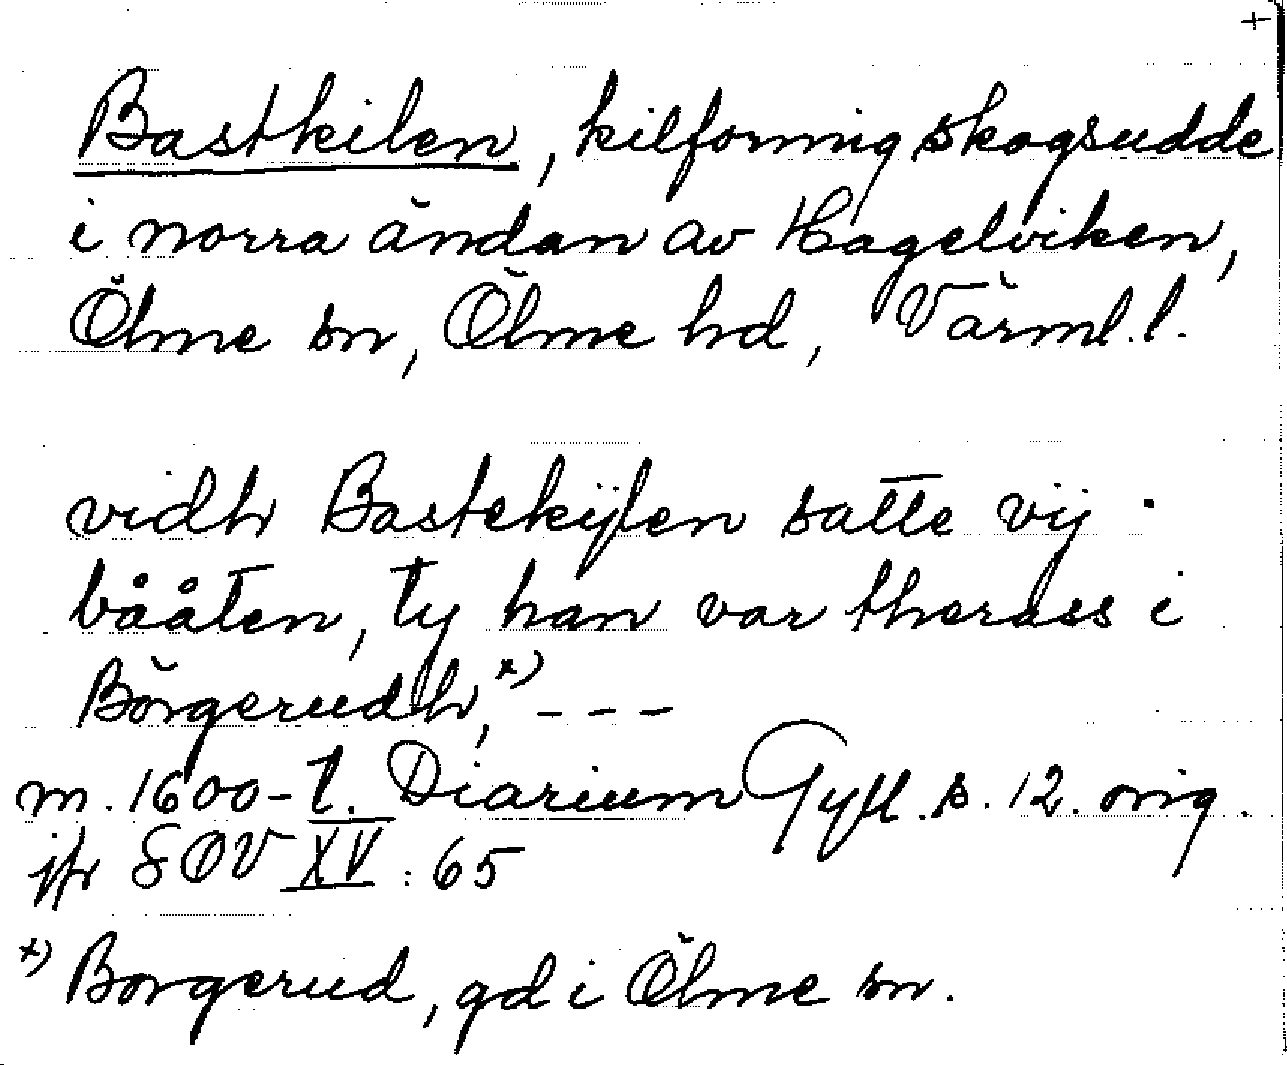 +
Bastkilen, kilformig skogsudde
i norra ändan av Hagelviken,
Ölme sn, Ölme hd, Värml. l.
vidh Bastekÿlen satte vij
bååten, ty han var therass i
Börgerudh,*) - - -
m. 1600-t. Diarium Gyll. s. 12. orig.
jfr SOV XV : 65
*) Borgerud, gd i Ölme sn.